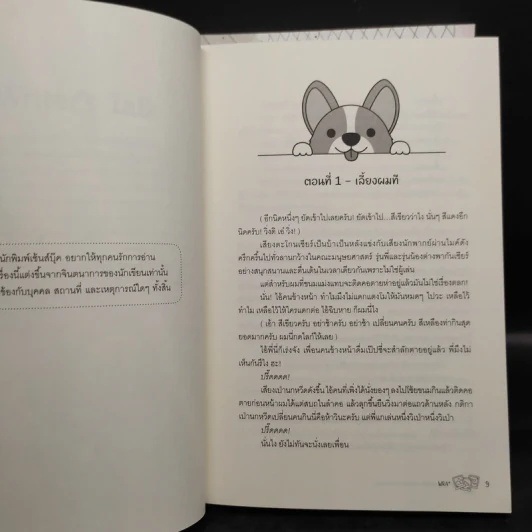 นักพิมพ์เซ็นส์บุ๊ค อยากให้ทุกคนรักการอ่าน
รื่องนี้แต่งขึ้นจากจินตนาการของนักเขียนเท่านั้น
ข้องกับบุคคล สถานที่ และเหตุการณ์ใดๆ ทั้งสิ้น
ตอนที่ 1 – เลี้ยงผมที
( อีกนิดหนึ่งๆ ยัดเข้าไปเลยครับ! ยัดเข้าไป...สีเขียวว่าไง นั่นๆ สีแดงอีก
นิดครับ! วิ่งดิ เฮ่ วิ่ง! )
เสียงตะโกนเชียร์เป็นบ้าเป็นหลังแข่งกับเสียงนักพากย์ผ่านไมค์ดัง
ครึกครื้นไปทั่วลานกว้างในคณะมนุษยศาสตร์ รุ่นพี่และรุ่นน้องต่างพากันเชียร์
อย่างสนุกสนานและตื่นเต้นในเวลาเดียวกันเพราะไม่ใช่ผู้เล่น
แต่สำหรับผมที่ขนมแน่งแทบจะติดคอตายห่าอยู่แล้วมันไม่ใช่เรื่องตลก!
นั่น! ไอ้คนข้างหน้า ทำไมมึงไม่แดกแตงโมให้มันหมดๆ ไปวะ เหลือไว้
ทำไม เหลือไว้ให้ใครแดกต่อ ไอ้ฉิบหาย ก็ผมนี่ไง
( เอ้า สีเขียวครับ อย่าช้าครับ อย่าช้า เปลี่ยนคนครับ สีเหลืองท่ากินสุด
ยอดมากครับ ผมนี่กดไลก์ให้เลย )
ไอ้พี่นี่ก็เร่งจัง เพื่อนคนข้างหน้าดื่มเป๊ปซี่จะสำลักตายอยู่แล้ว พี่มึงไม่
เห็นกันรึไง ฮะ!
ปรี๊ดดดด!
เสียงเป่านกหวีดดังขึ้น ไอ้คนที่เพิ่งได้นั่งของๆ ลงไปโซ้ยขนมกินแล้วติดคอ
ตายก่อนหน้าผมได้แต่สบถในลำคอ แล้วลุกขึ้นยืนวิ่งมาต่อแถวด้านหลัง กติกา
เป่านกหวีดเปลี่ยนคนกินนี่คือห้าวินะครับ แต่พี่แกเล่นหนึ่งวิเป่าหนึ่งวิเป่า
ปรี๊ดดดด!
นั่นไง ยังไม่ทันจะนั่งเลยเพื่อน
9